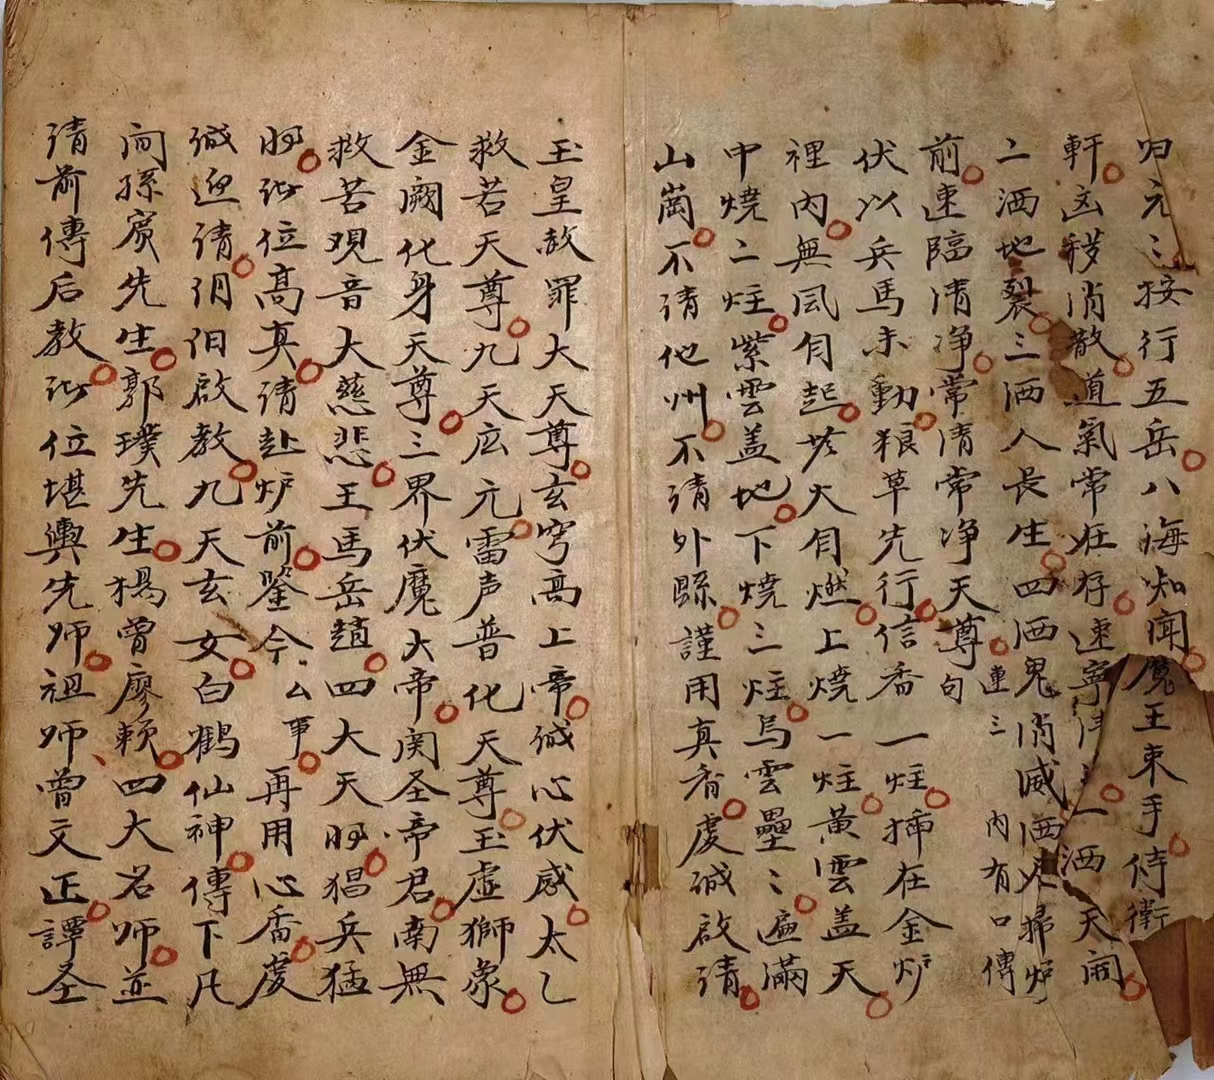 归元之按行五岳八海知闻魔王束手侍衛
軒凶穢消散道氣常在存速寧清一洒天開
二洒地裂三洒人長生四洒鬼消滅洒水歸炉
前速臨清净常清常净天尊句連三內有口傳
伏以兵馬未動粮草先行信香一炷插在金炉
裡內無风自起炎大自燃上燒一炷黃雲盖天
中燒二炷紫雲盖地下燒三炷烏雲壘〻遍滿
山崗不請他州不請外縣謹用真香虔誠啟請
玉皇赦罪大天尊玄穹高上帝誠心伏感太乙
救苦天尊九天应元雷声普化天尊玉虛獅象
金闕化身天尊三界伏魔大帝関圣帝君南無
救苦观音大慈悲王馬岳趙四大天將猖兵猛
將以位高真請赴炉前鉴今厶事再用心香虔
誠迎請汨汩啟教九天玄女白鶴仙神傳下凡
间孫賓先生郭璞先生楊曾廖賴四大名师並
請前傳后教以位堪輿先师祖师曾文正譚圣